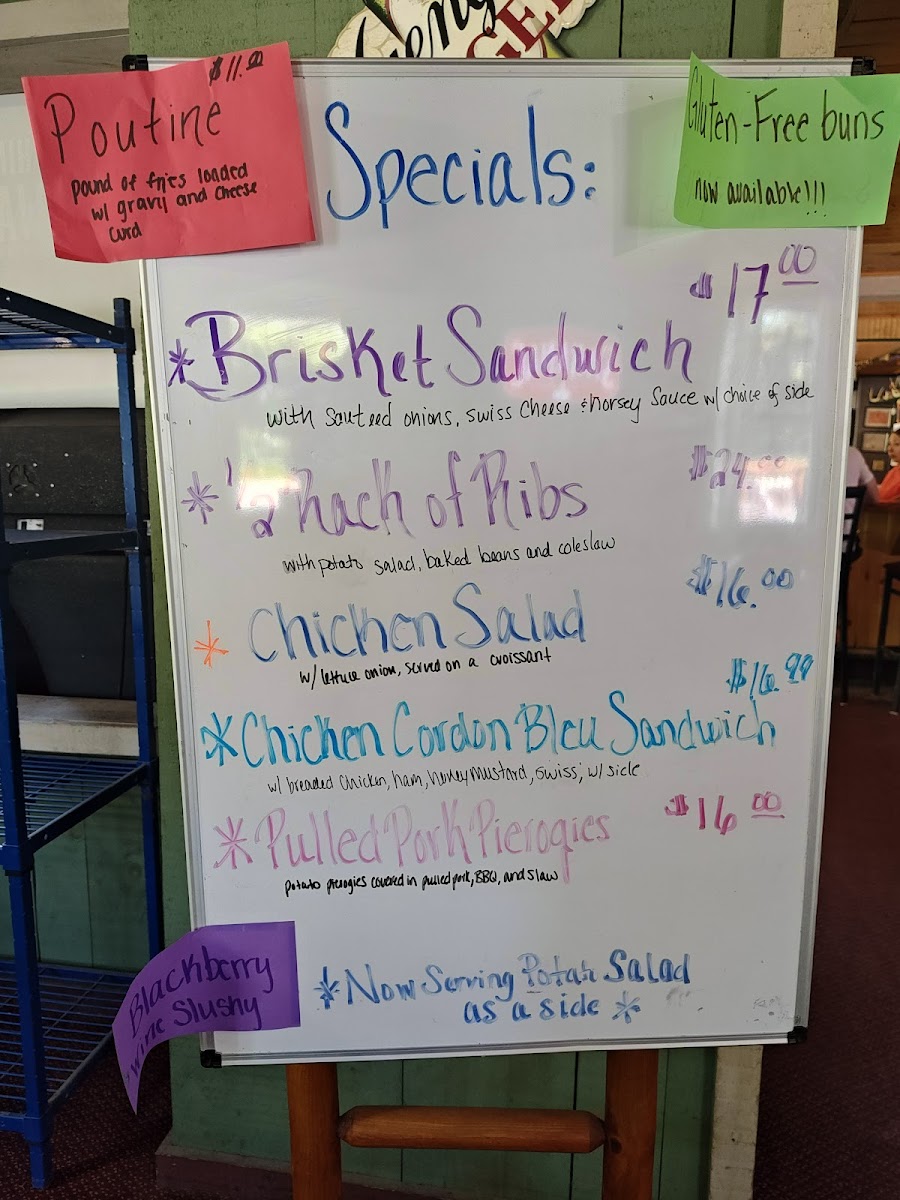 $11.00
Poutine
pound of fries loaded
w/ gravy and cheese
curd
Specials:
Gluten-Free buns
now available!!!
$17.00
*Brisket Sandwich
with sauteed onions, swiss cheese & horsey sauce w/ choice of side
$24.00
*1/2 Rack of Ribs
with potato salad, baked beans and coleslaw
$16.00
*Chicken Salad
w/ lettuce onion, served on a croissant
$16.99
*Chicken Cordon Bleu Sandwich
w/ breaded chicken, ham, honey mustard, swiss, w/ side
$16.00
*Pulled Pork Pierogies
potato pierogies covered in pulled pork, BBQ, and slaw
Blackberry
wine Slushy
*Now Serving Salad
as a side *